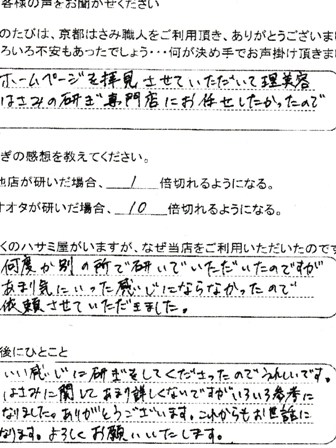 客様の声をお聞かせください
のたびは、京都はさみ職人をご利用頂き、ありがとうございま
ろいろ不安もあったでしょう・・・何が決め手でお声掛け頂きま
ホームページを拝見させていただいて理美容
はさみの研ぎ専門店にお任せしたかったので
ぎの感想を教えてください。
他店が研いだ場合、 1 倍切れるようになる。
オタが研いだ場合、 10 倍切れるようになる。
くのハサミ屋がいますが、なぜ当店をご利用いただいたのです
何度か別の所で研いでいただいたのですが
あまり気にいった感じにならなかったので
依頼させていただきました。
後にひとこと
いい感じに研ぎをしてくださったのでうれしいです。
はさみに関してあまり詳しくないですがいろいろ参考に
なりました。ありがとうございます。これからもお世話に
なります。よろしくお願いいたします。